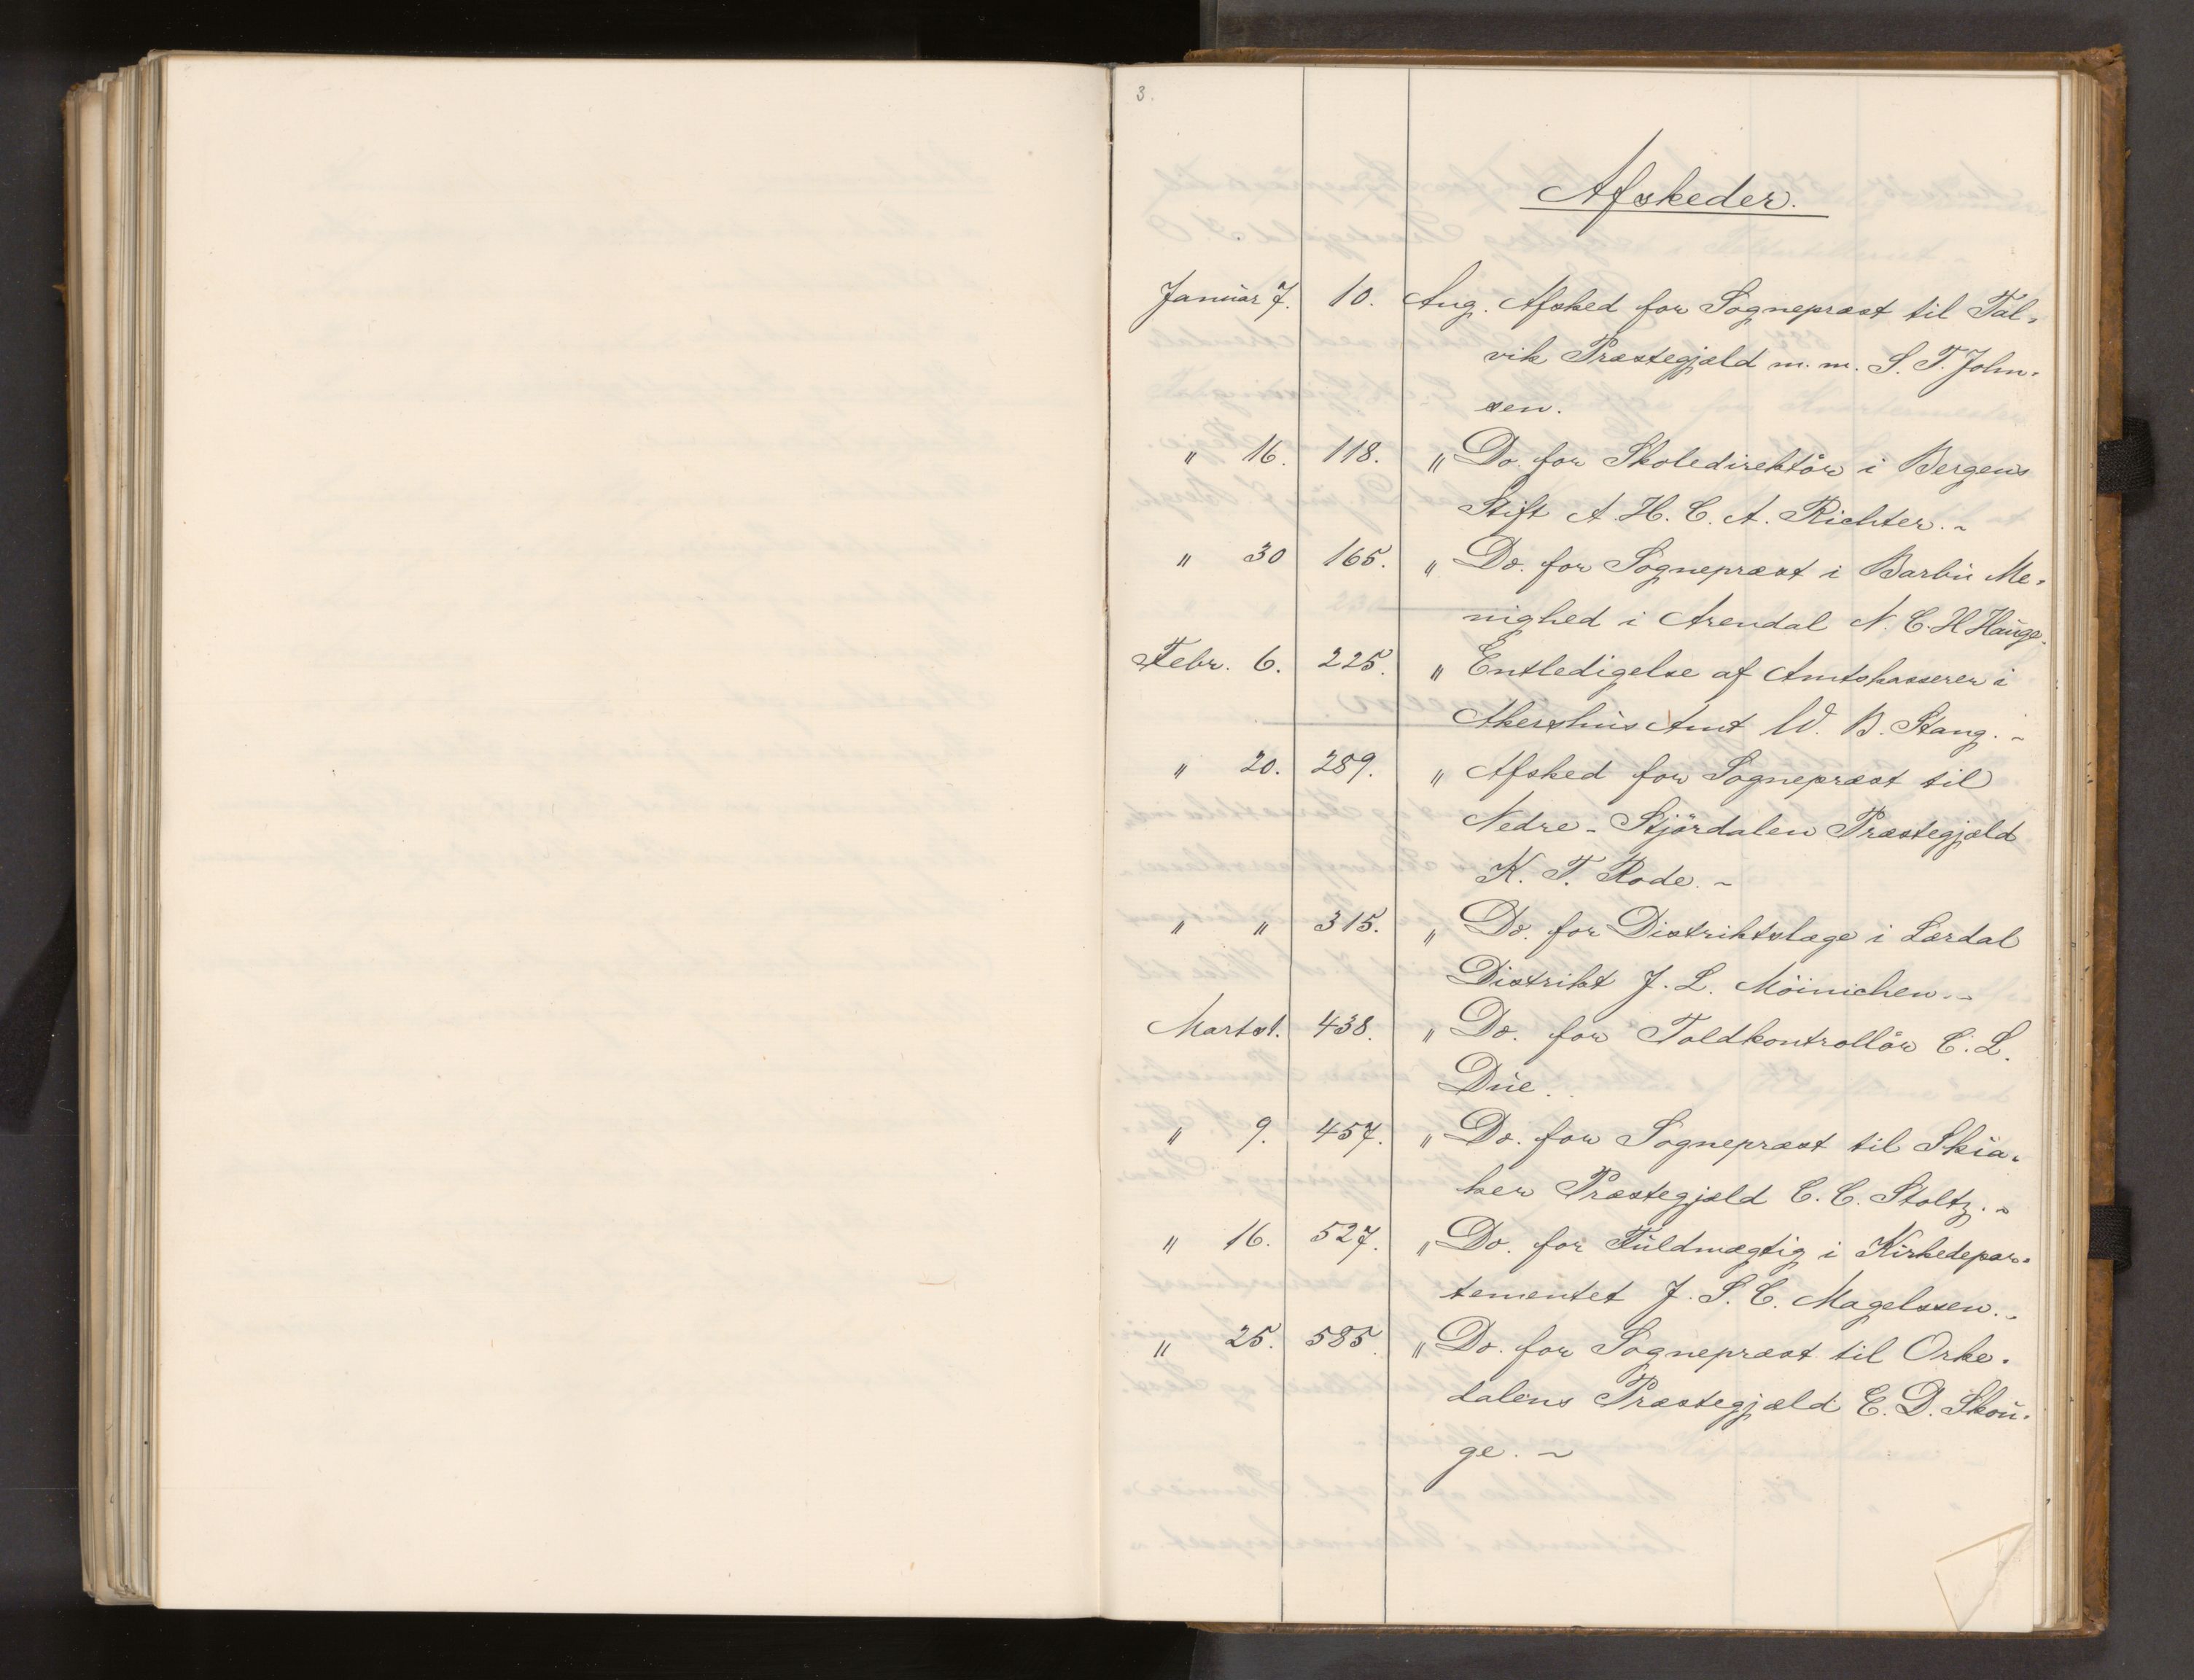 3.
Afskeder.
Januar 7. 10. Ang. Afsked for Sognepræst til Tal-
vik Præstegjæld m.m. S. T. John-
sen.
" 16. 118. " Do. for Skoledirektör i Bergens
Stift A. H. C. A. Richter. -
" 30 165. " Do. for Sognepræst i Barbu Me-
nighed i Arendal N. C. H Hauge.
Febr. 6. 225. " Entledigelse af Amtskasserer i
Akershus Amt W. B. Stang. -
" 20. 289. " Afsked for Sognepræst til
Nedre-Stjördalen Præstegjæld
K. T. Rode. -
" " 315. " Do. for Distriktslæge i Lærdal
Distrikt J. L. Möinichen. -
Marts 1. 438. " Do. for Toldkontrollör C. L.
Due.
" 9. 457. " Do. for Sognepræst til Skia-
ker Præstegjæld C. C. Stoltz. -
" 16. 527. " Do. for Fuldmægtig i Kirkedepar-
tementet J. S. C. Magelssen. -
" 25. 585. " Do. for Sognepræst til Orke-
dalens Præstegjæld E. D. Skou-
ge. -